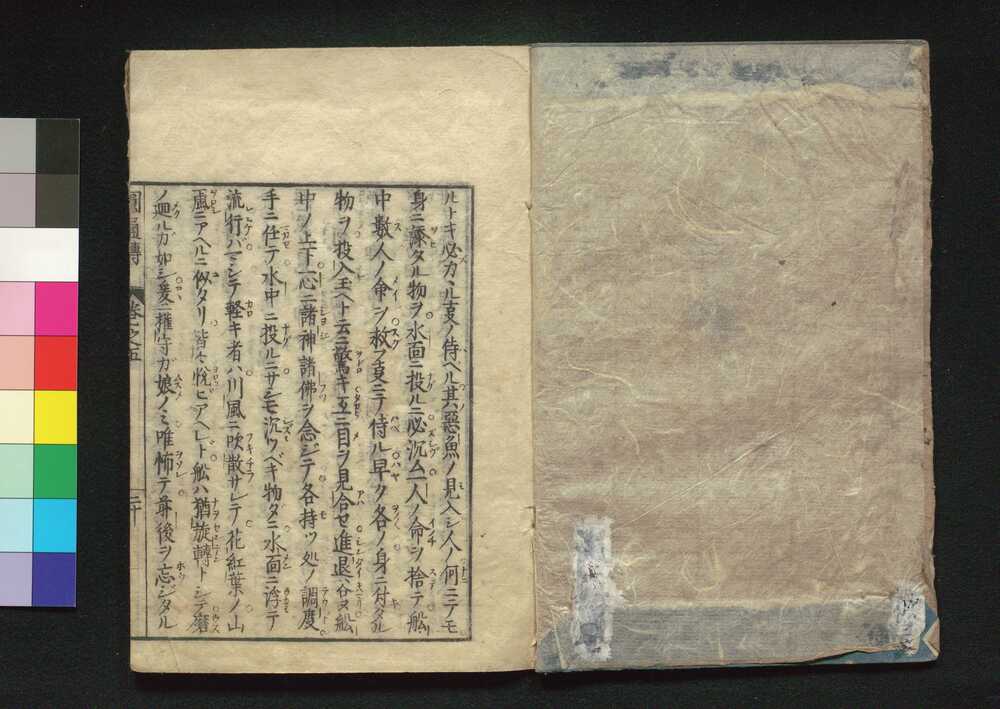 ルトキ必カヽル事ノ侍ベル其惡魚ノ見入シ人ノ何ニテモ
身ニ添タル物ヲ水面ニ投ルニ必沈ム一人ノ命ヲ捨テ舩
中數人ノ命ヲ救フ事ニテ侍ル早ク各ノ身ニ付タル
物ヲ投入玉ヘト云ニ驚キ互ニ目ヲ見合セ進退谷ヌ舩
中ノ上下一心ニ諸神諸佛ヲ念ジテ各持ツ処ノ調度
手ニ任テ水中ニ投ルニサシモ沉ツベキ物ダニ水面ニ浮テ
流行ハマシテ軽キ者ハ川風ニ吹散サレテ花紅葉ノ山
風ニアヘルニ似タリ皆々悦ヒアヘレト舩ハ猶旋轉トシテ磨
ノ廻ルガ如シ爰ニ權守ガ娘ノミ唯怖テ前後ヲ忘ジタル
卷之五
二十